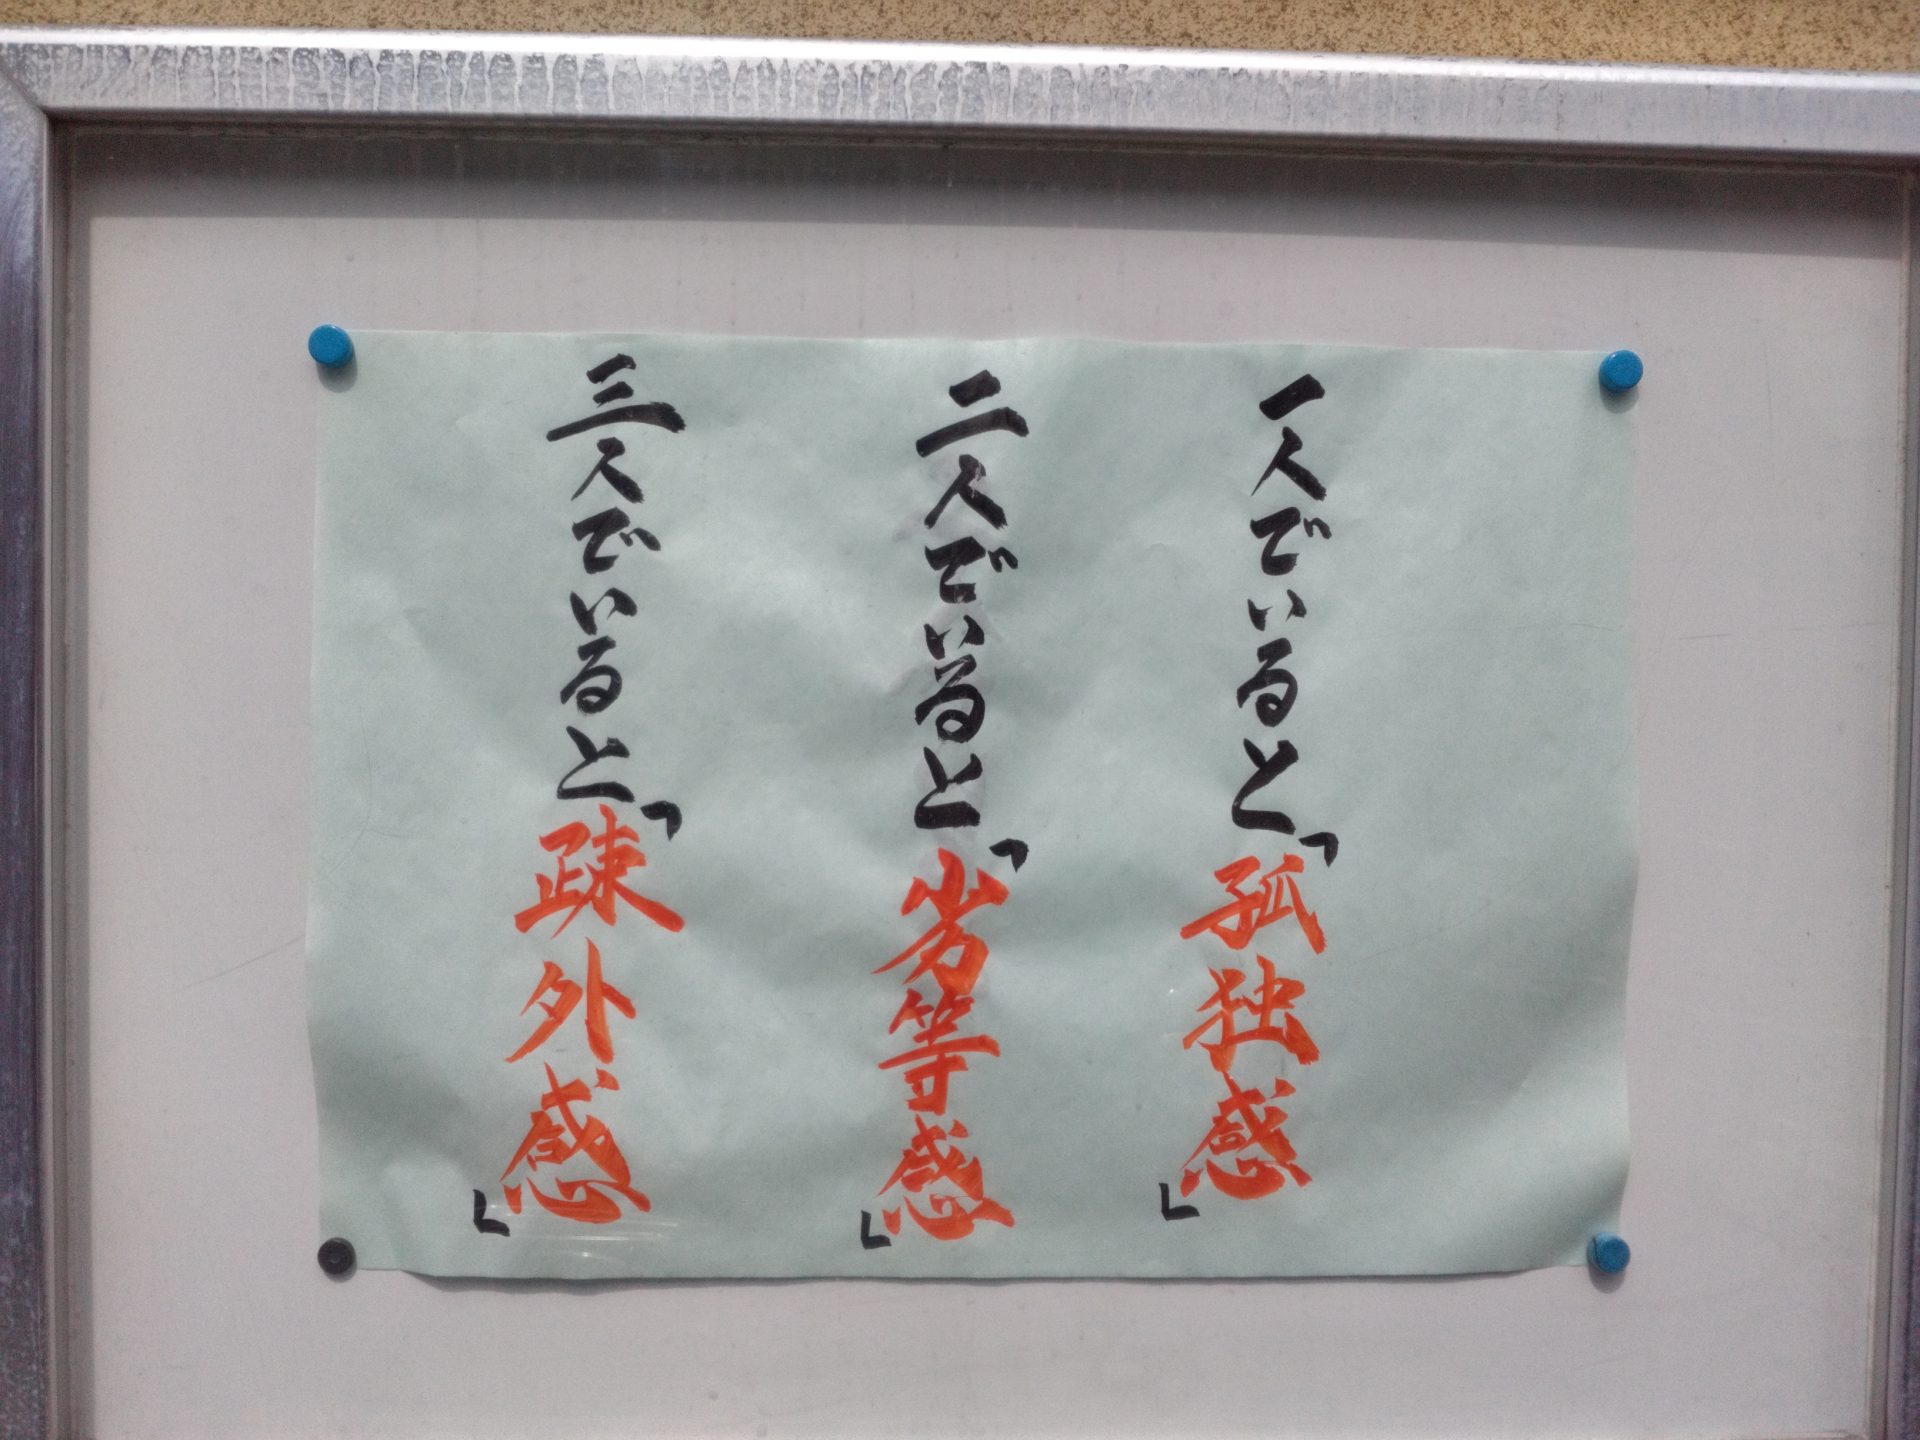 一人でいると「孤独感」
二人でいると「劣等感」
三人でいると「疎外感」